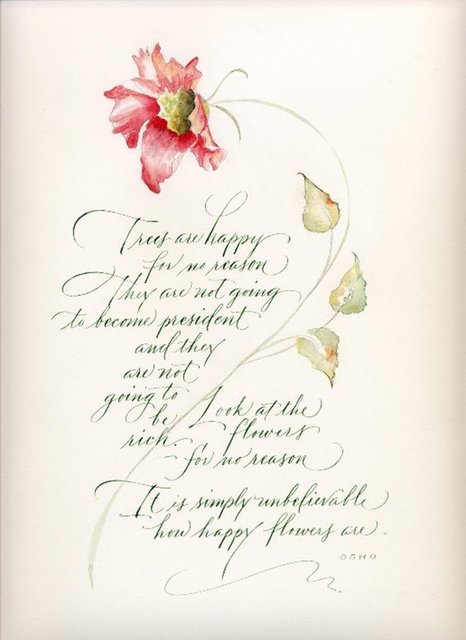 Trees are happy
for no reason
They are not going
to become president
and they
are not
going to
be
rich.
Look at the
flowers
- for no reason
It is simply unbelievable
how happy flowers are.
OSHO